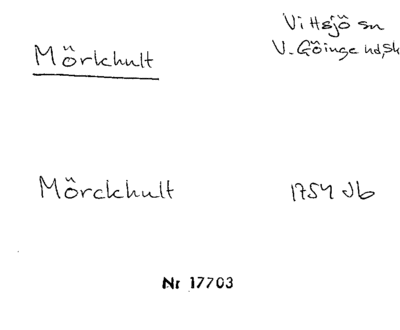 Mörkhult
Vittsjö sn
V. Göinge hd, Sk
Mörckhult
1754 Jb
Nr 17703